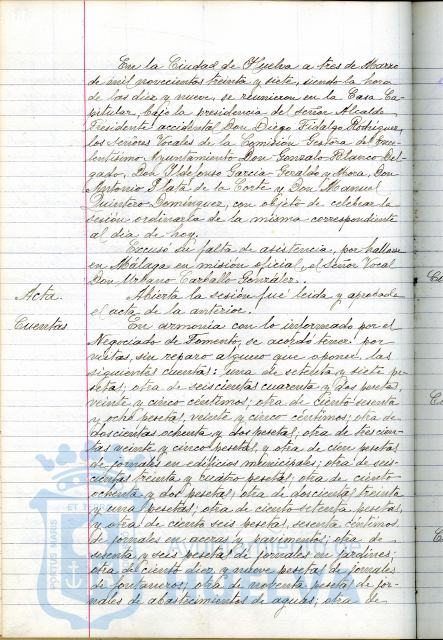 En la Ciudad de Huelva a tres de Marzo
de mil novecientos treinta y siete, siendo la hora
de las diez y nueve, se reunieron en la Casa Ca-
pitular, bajo la presidencia del Señor Alcalde
Presidente accidental Don Diego Fidalgo Rodríguez,
los Señores Vocales de la Comisión Gestora del Exce-
lentísimo Ayuntamiento Don Gonzalo Blanco Del-
gado, Don Ildefonso García Geraldo y Mora, Don
Antonio Plata de la Corte y Don Manuel
Quintero Domínguez, con objeto de celebrar la
sesión ordinaria de la misma correspondiente
al día de hoy.
Excusó su falta de asistencia, por hallarse
en Málaga en misión oficial, el Señor Vocal
Don Urbano Carballo González.
Acta. Abierta la sesión fué leída y aprobada
el acta de la anterior.
Cuentas En armonía con lo informado por el
Negociado de Fomento, se acordó tener por
vistas, sin reparo alguno que oponer, las
siguientes cuentas: una de setenta y siete pe-
setas; otra de seiscientas cuarenta y dos pesetas,
veinte y cinco céntimos; otra de ciento sesenta
y ocho pesetas, veinte y cinco céntimos; otra de
doscientas ochenta y dos pesetas; otra de trescien-
tas veinte y cinco pesetas, y otra de cien pesetas
de jornales en edificios municipales; otra de
cientas treinta y cuatro pesetas; otra de ciento
ochenta y dos pesetas; otra de doscientas treinta
y una pesetas; otra de ciento setenta pesetas,
y otra de ciento seis pesetas, sesenta céntimos
de jornales en aceras y pavimentos; otra de
sesenta y seis pesetas de jornales en jardines;
otra de ciento diez y nueve pesetas de jornales
de fontaneros; otra de noventa pesetas de jor-
nales de abastecimientos de aguas; otra de
PORTUS MARIS
HUELVA